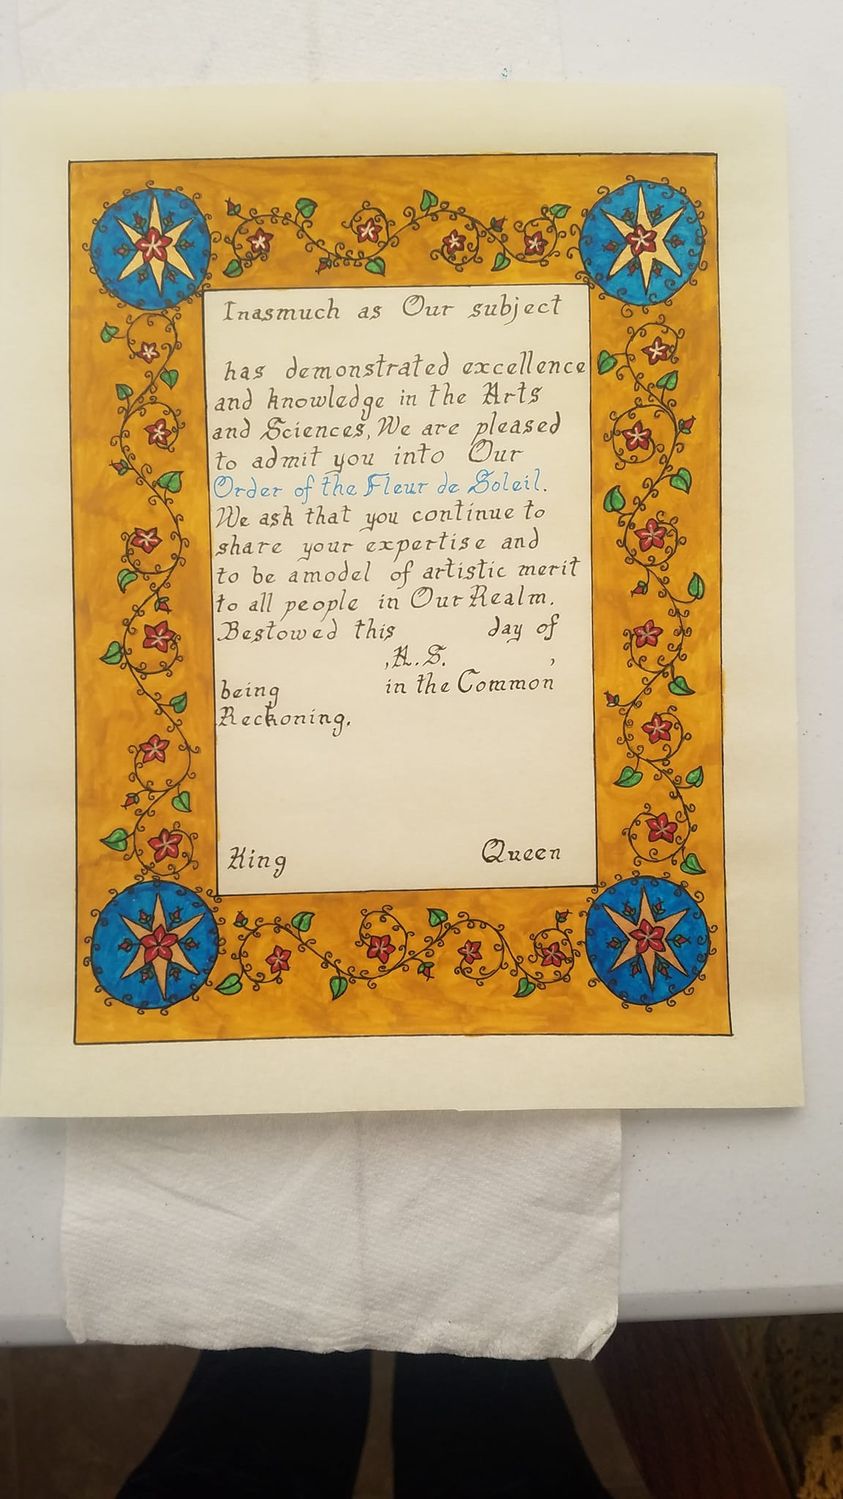 Inasmuch as Our subject
has demonstrated excellence
and knowledge in the Arts
and Sciences, We are pleased
to admit you into Our
Order of the Fleur de Soleil.
We ask that you continue to
share your expertise and
to be amodel of artistic merit
to all people in Our Realm.
Bestowed this day of
,A.S. ,
being in the Common
Reckoning.
King Queen